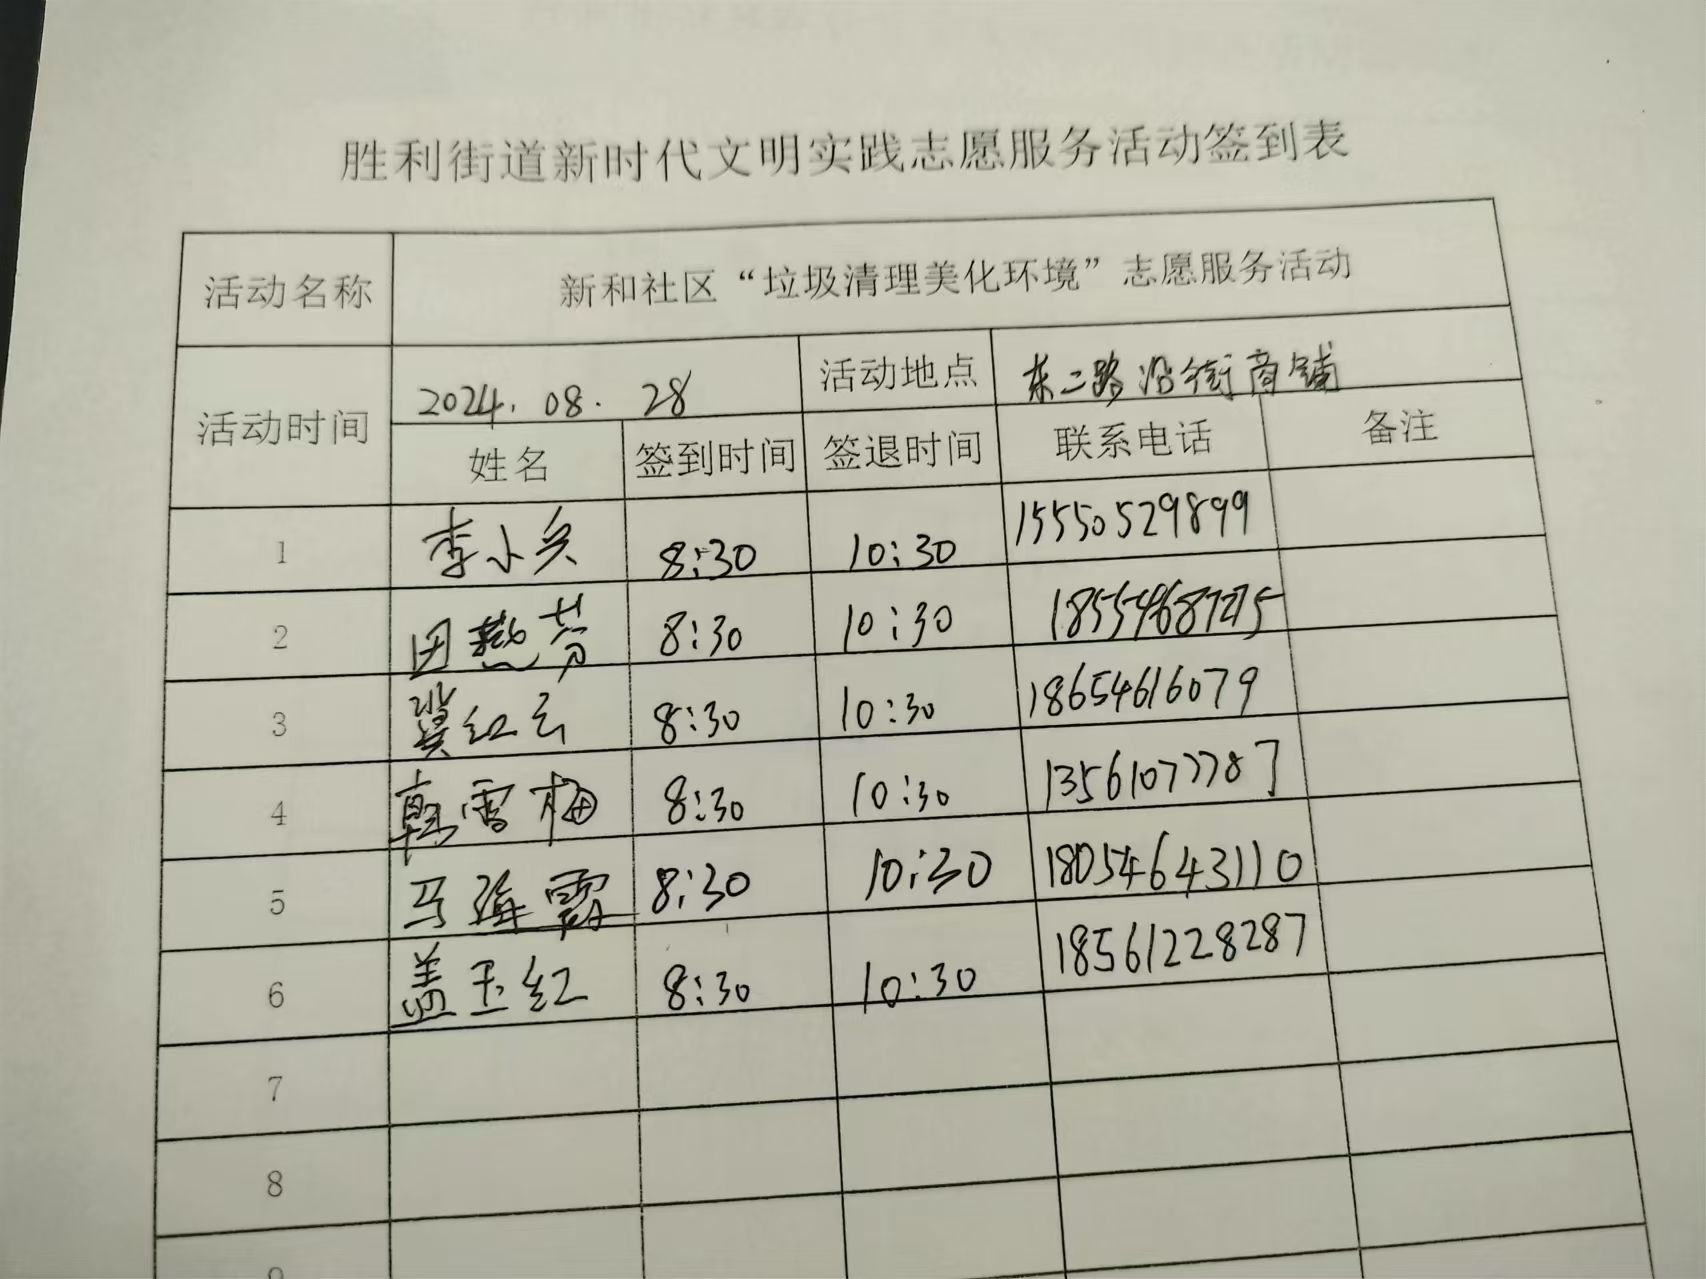 胜利街道新时代文明实践志愿服务活动签到表
活动名称 新和社区“垃圾清理美化环境”志愿服务活动
活动时间 2024.08.28 活动地点 东二路沿街商铺
姓名 签到时间 签退时间 联系电话 备注
1 李小兵 8:30 10:30 15550529899
2 田燕芬 8:30 10:30
3 冀红云 8:30 10:30 18654616079
4 韩雪梅 8:30 10:30 13561077787
5 马海霞 8:30 10:30 18054643110
6 盖玉红 8:30 10:30 18561228287
7
8